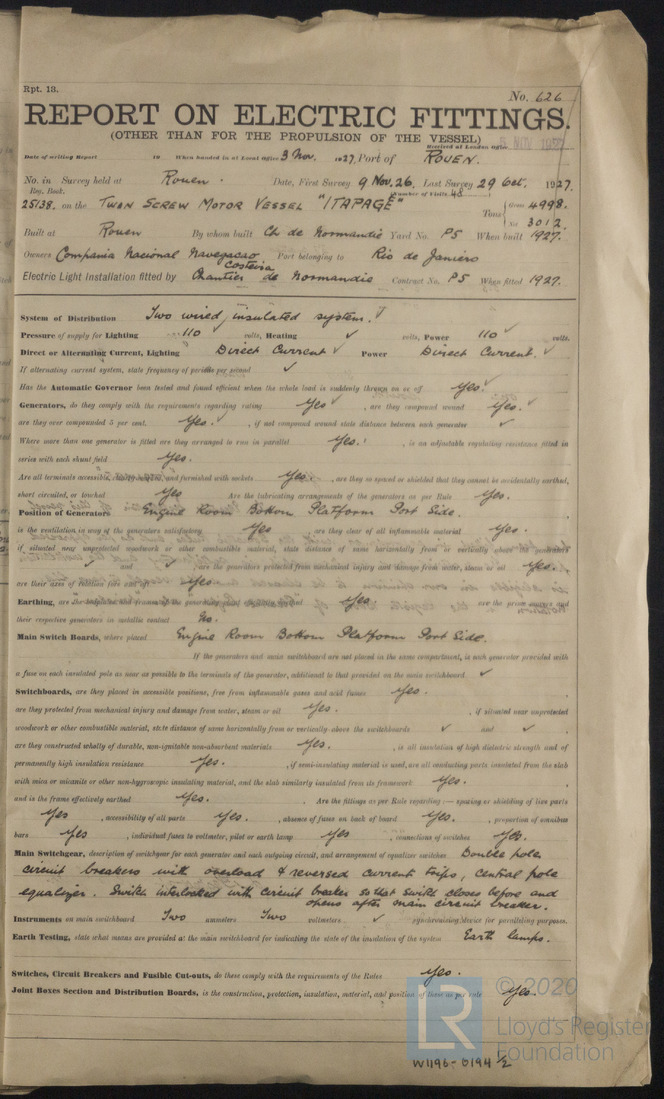 Rpt. 13.
No. 626
REPORT ON ELECTRIC FITTINGS.
(OTHER THAN FOR THE PROPULSION OF THE VESSEL)
Received at London Office
Date of writing Report 19 When handed in at Local Office 3 Nov. 1927. Port of ROUEN.
No. in Survey held at Rouen. Date, First Survey 9 Nov. 26. Last Survey 29 Oct. 1927.
Reg. Book. (Number of Visits 40
25138. on the TWIN SCREW MOTOR VESSEL "ITAPAGE" Tons { Gross 4998. Net 3012.
Built at Rouen By whom built Ch. de Normandie Yard No. P5 When built 1927.
Owners Compania Nacional Navegacao Costeira Port belonging to Rio de Janiero
Electric Light Installation fitted by Chantier de Normandie Contract No. P5 When fitted 1927.
System of Distribution Two wired insulated system. ✓
Pressure of supply for Lighting 110 ✓ volts, Heating ✓ volts, Power 110 ✓ volts.
Direct or Alternating Current, Lighting Direct Current ✓ Power Direct Current. ✓
If alternating current system, state frequency of periods per second ✓
Has the Automatic Governor been tested and found efficient when the whole load is suddenly thrown on or off Yes. ✓
Generators, do they comply with the requirements regarding rating Yes ✓, are they compound wound Yes. ✓
are they over compounded 5 per cent. Yes. ✓, if not compound wound state distance between each generator ✓
Where more than one generator is fitted are they arranged to run in parallel Yes. , is an adjustable regulating resistance fitted in
series with each shunt field Yes.
Are all terminals accessible and furnished with sockets Yes , are they so spaced or shielded that they cannot be accidentally earthed,
short circuited, or touched Yes Are the lubricating arrangements of the generators as per Rule Yes.
Position of Generators Engine Room Bottom Platform Port Side.
is the ventilation in way of the generators satisfactory Yes , are they clear of all inflammable material Yes.
if situated near unprotected woodwork or other combustible material, state distance of same horizontally from or vertically above the generators
✓ and ✓ , are the generators protected from mechanical injury and damage from water, steam or oil Yes.
are their axes of rotation fore and aft Yes
Earthing, are the Yes. are the prime movers and
their respective generators in metallic contact No.
Main Switch Boards, where placed Engine Room Bottom Platform Port Side.
If the generators and main switchboard are not placed in the same compartment, is each generator provided with
a fuse on each insulated pole as near as possible to the terminals of the generator, additional to that provided on the main switchboard ✓
Switchboards, are they placed in accessible positions, free from inflammable gases and acid fumes Yes.
are they protected from mechanical injury and damage from water, steam or oil Yes. , if situated near unprotected
woodwork or other combustible material, state distance of same horizontally from or vertically above the switchboards ✓ and ✓
are they constructed wholly of durable, non-ignitable non-absorbent materials Yes. , is all insulation of high dielectric strength and of
permanently high insulation resistance Yes. , if semi-insulating material is used, are all conducting parts insulated from the slab
with mica or micanite or other non-hygroscopic insulating material, and the slab similarly insulated from its framework Yes.
and is the frame effectively earthed Yes. Are the fittings as per Rule regarding:— spacing or shielding of live parts
Yes , accessibility of all parts Yes. , absence of fuses on back of board Yes. , proportion of omnibus
bars Yes , individual fuses to voltmeter, pilot or earth lamp Yes , connections of switches Yes.
Main Switchgear, description of switchgear for each generator and each outgoing circuit, and arrangement of equaliser switches Double pole
circuit breakers with overload & reversed current trips, central pole
equalizer. Switch interlocked with circuit breaker so that switch closes before and
opens after main circuit breaker.
Instruments on main switchboard Two ammeters Two voltmeters ✓ synchronizing device for paralleling purposes.
Earth Testing, state what means are provided at the main switchboard for indicating the state of the insulation of the system Earth lamps.
Switches, Circuit Breakers and Fusible Cut-outs, do these comply with the requirements of the Rules Yes.
Joint Boxes Section and Distribution Boards, is the construction, protection, insulation, material, and position of these as per rule Yes.
© 2020
LR Lloyd's Register
Foundation
W1196-0194 1/2